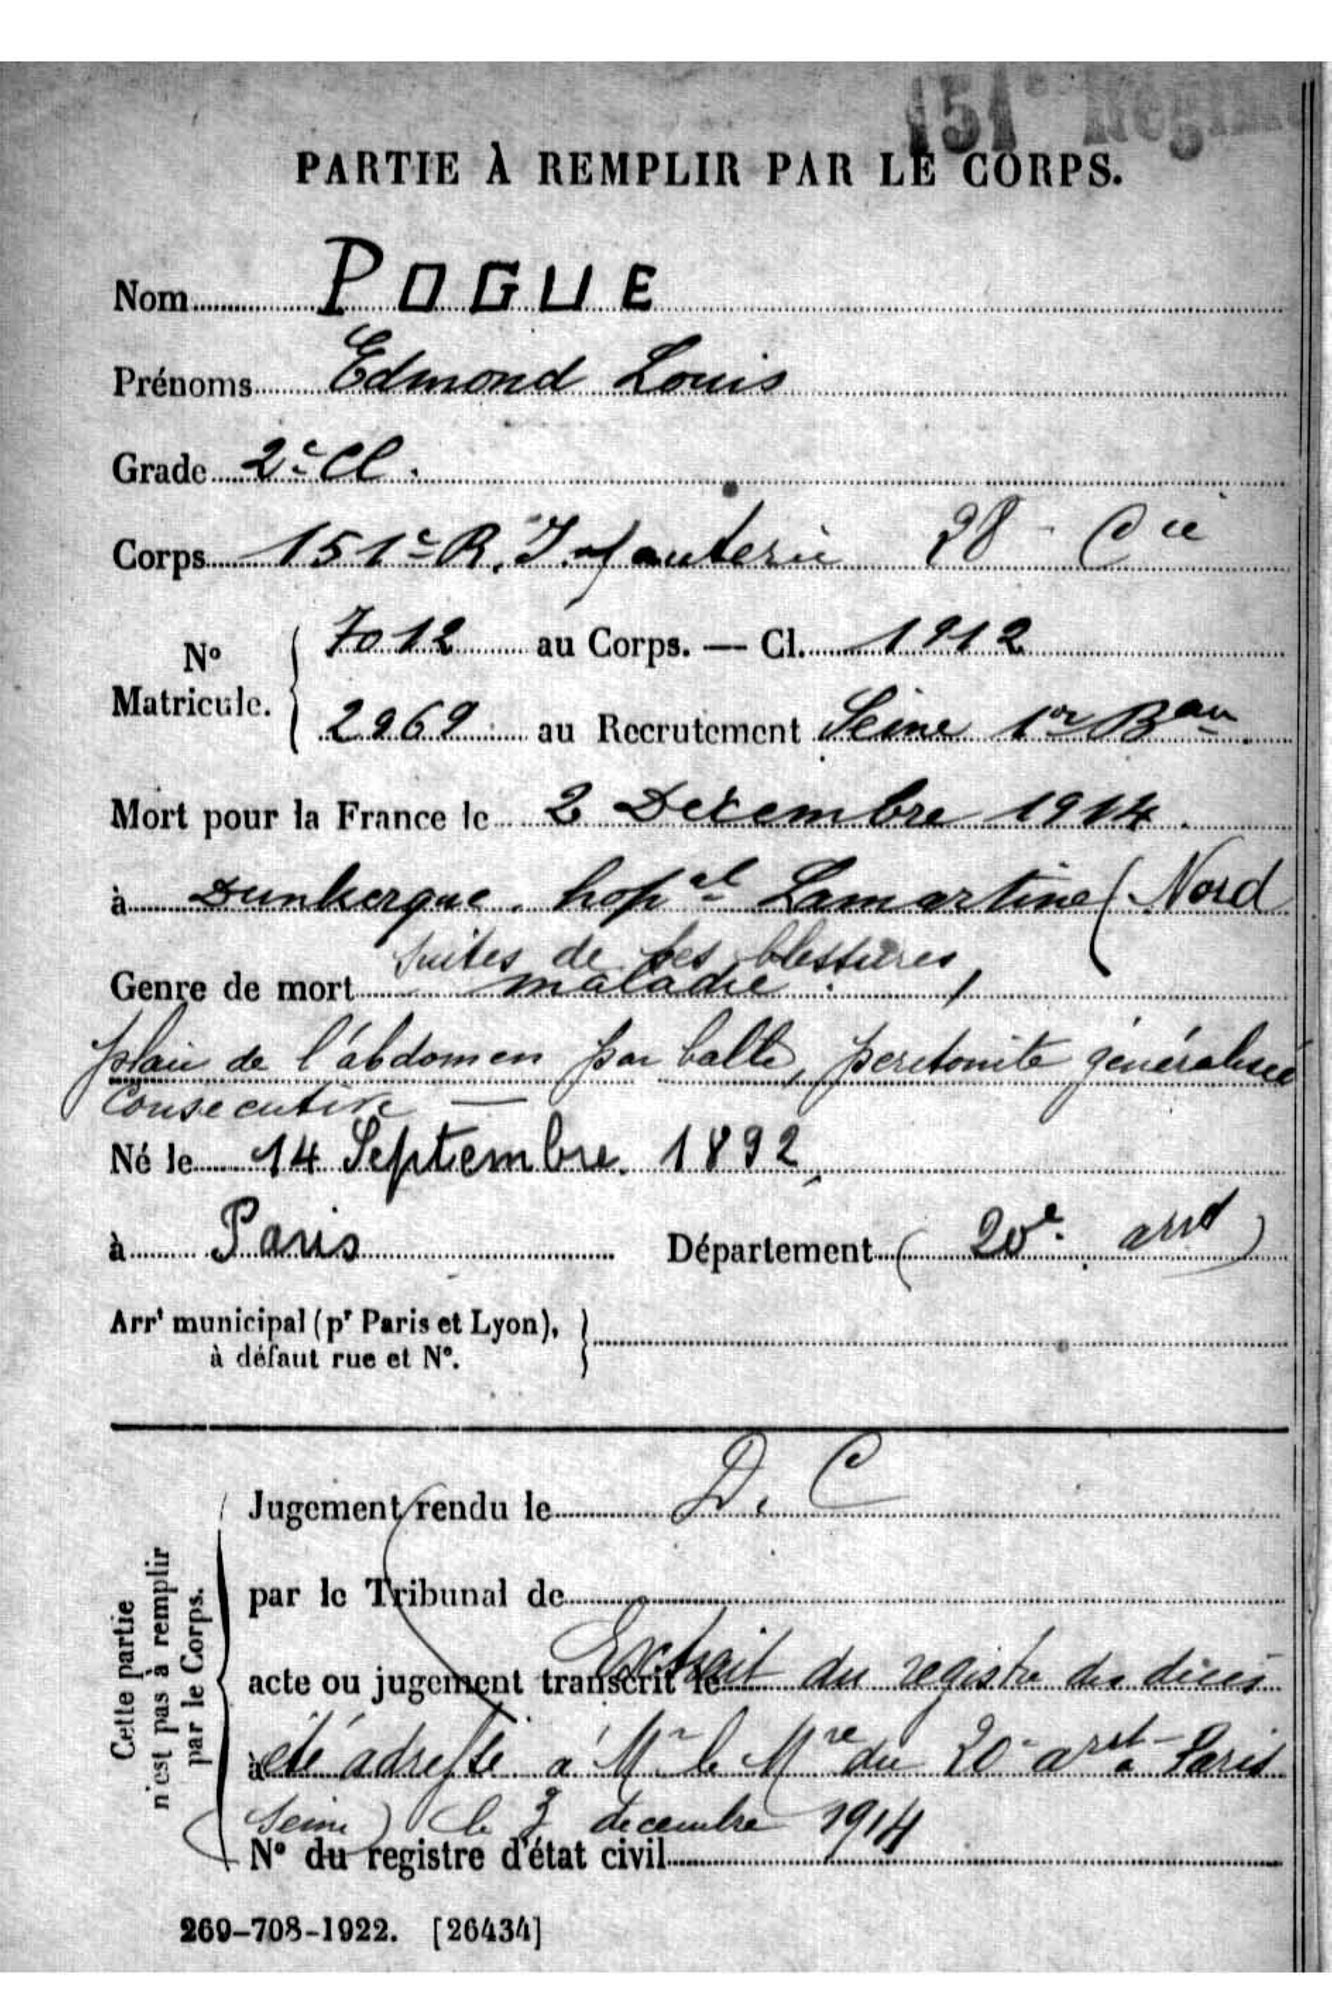 151e Régim
PARTIE À REMPLIR PAR LE CORPS.
Nom POGUE
Prénoms Edmond Louis
Grade 2e Cl.
Corps 151e R. Infanterie 28e Cie
No Matricule. 7012 au Corps. — Cl. 1912
2969 au Recrutement Seine 1er Bau
Mort pour la France le 2 Décembre 1914.
à Dunkerque. hopal Lamartine (Nord
suites de ses blessures,
Genre de mort maladie.
plaie de l'abdomen par balle, peritonite généralisée
consecutive —
Né le 14 Septembre. 1892,
à Paris Département (20e. arrd)
Arrt municipal (pr Paris et Lyon),
à défaut rue et No.
D. C
Jugement rendu le
par le Tribunal de
acte ou jugement transcrit le Extrait du registre des décès
à été adressé a Mr le Mre du 20e arrt a Paris
(Seine) le 3 decembre 1914
No du registre d'état civil
Cette partie
n'est pas à remplir
par le Corps.
269-708-1922. [26434]